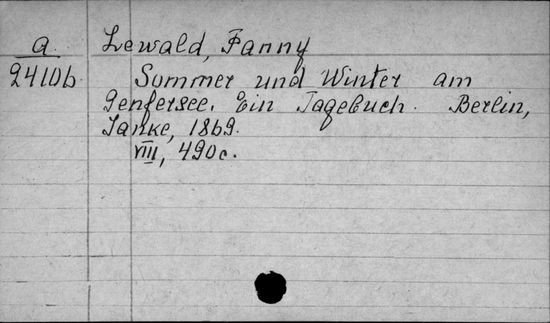 a
2410b
Lewald, Fanny
Sommer und Winter am
Genfersee. Ein Tagebuch. Berlin,
Janke, 1869.
VIII, 490 c.